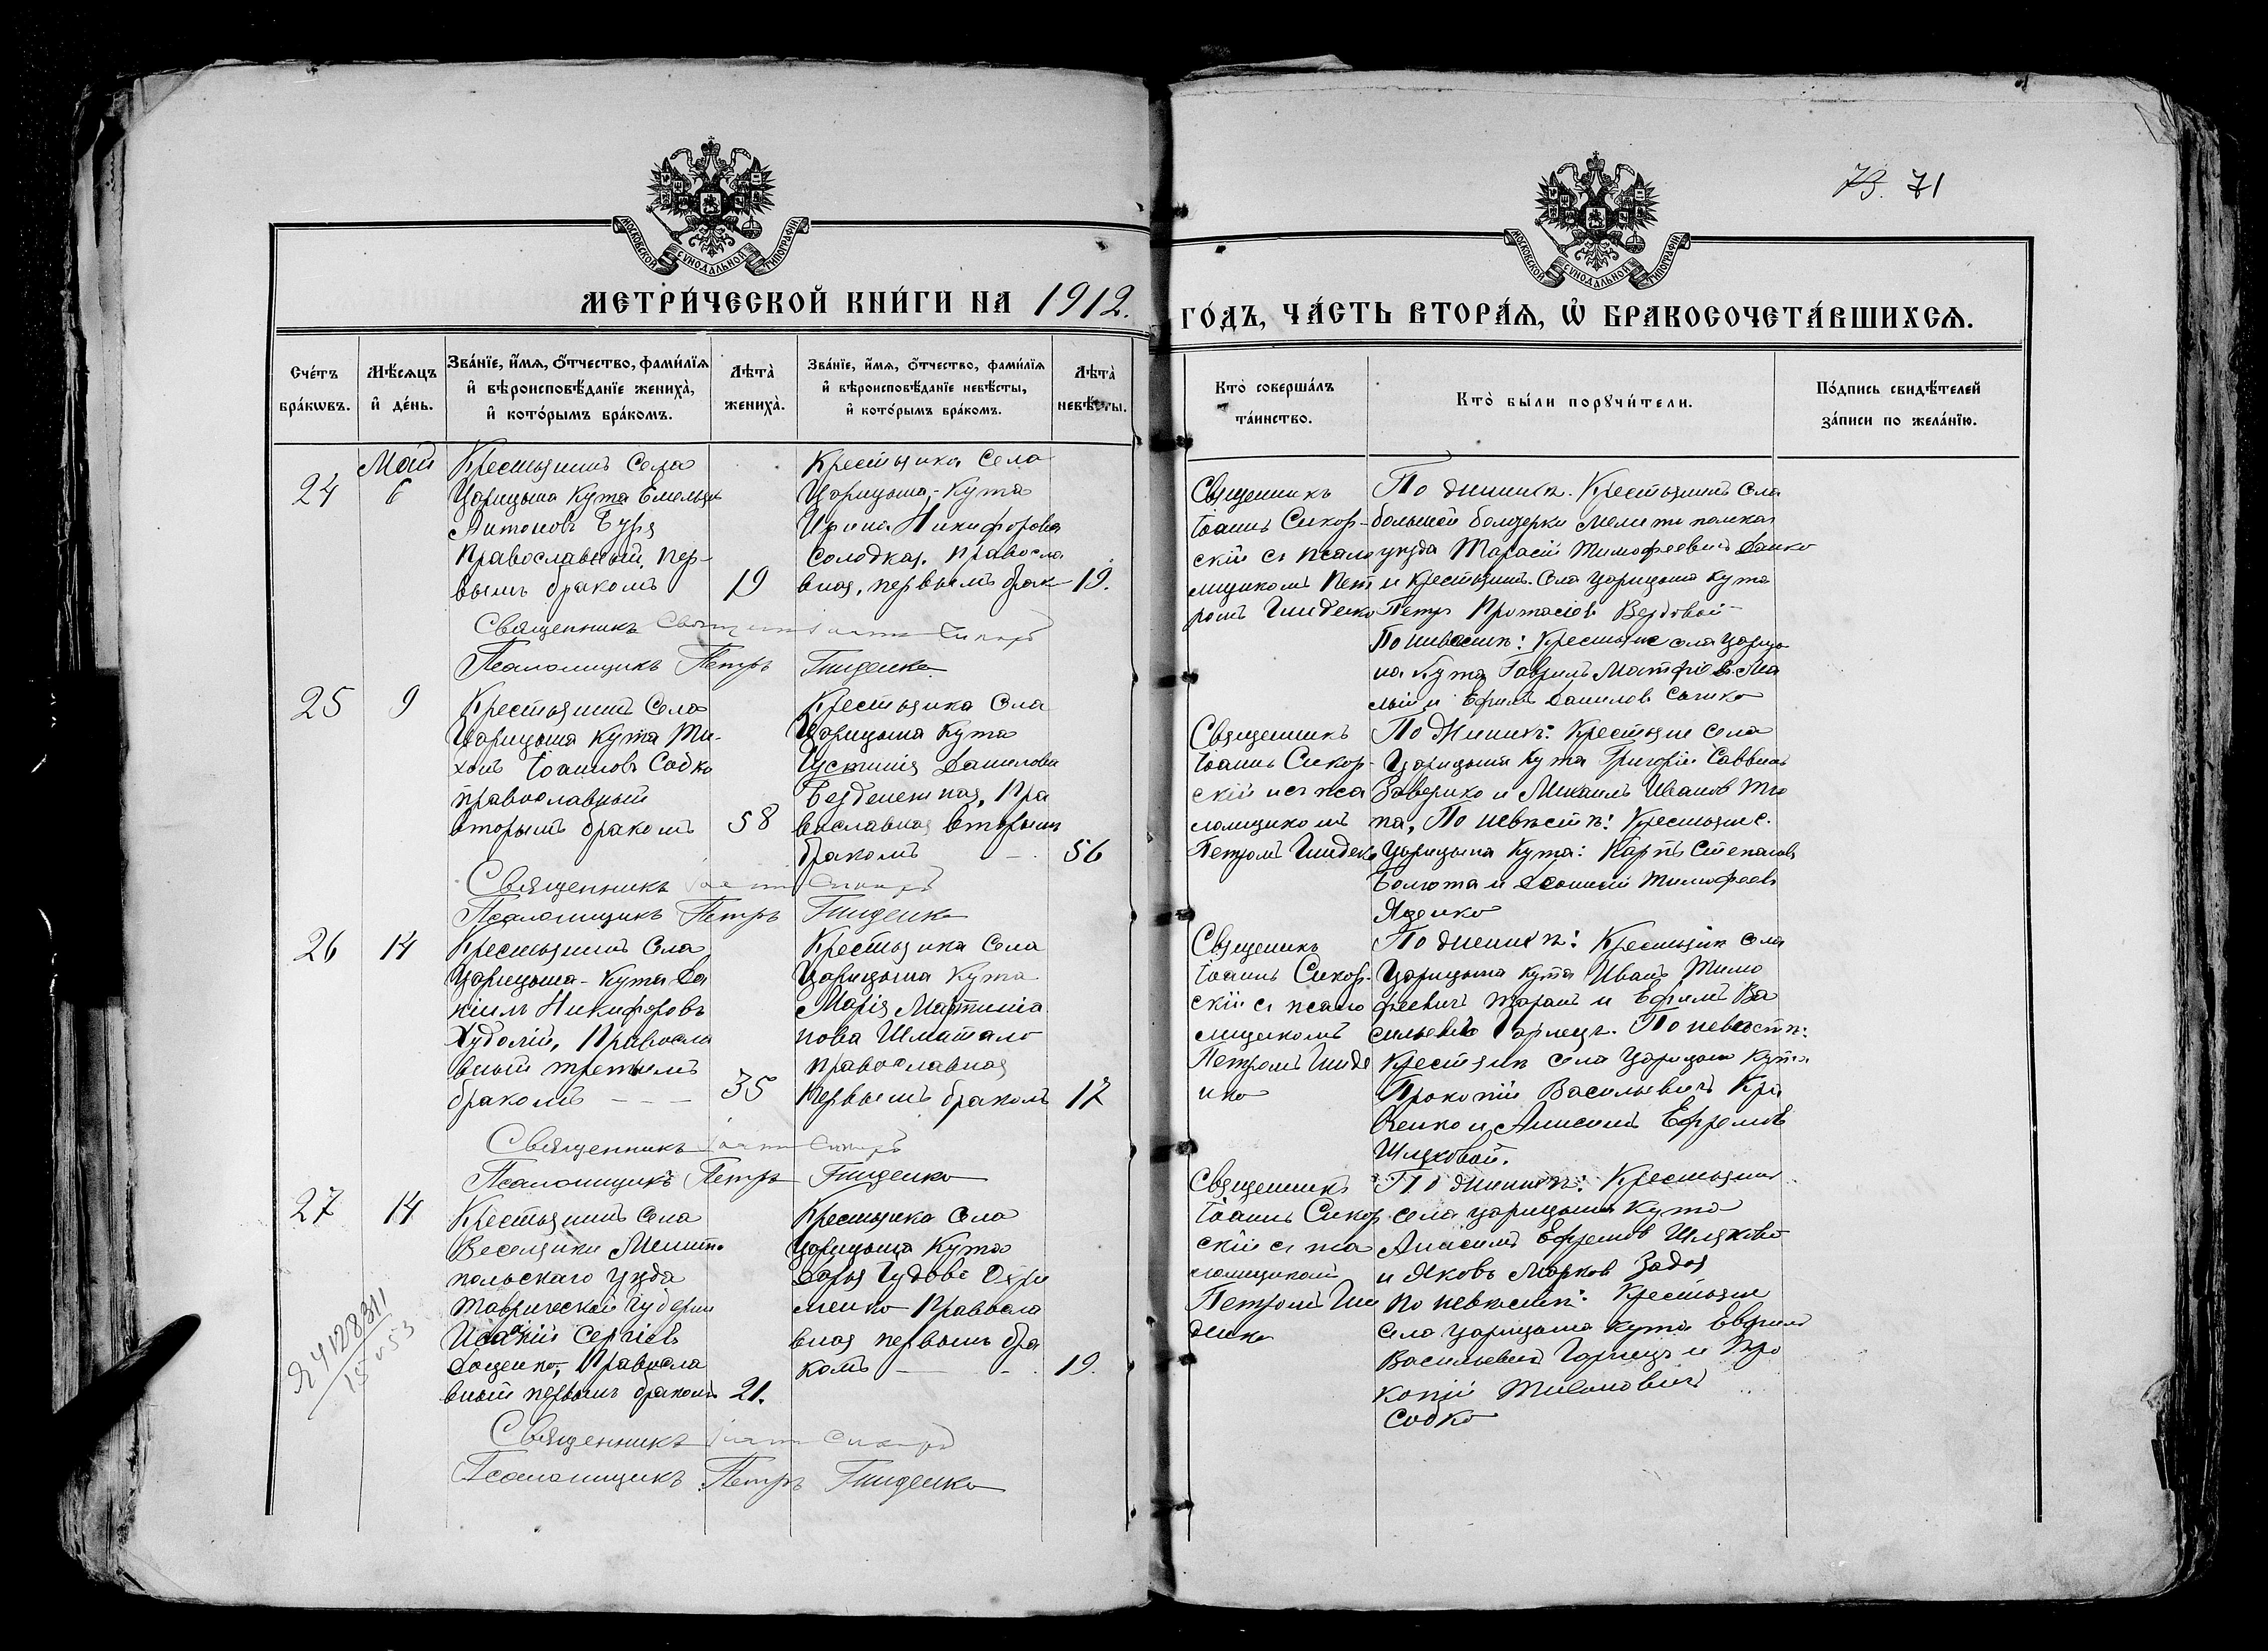 73. 71
МОСКОВСКОЙ СѴНОДАЛЬНОЙ ТИПОГРАФІИ
МОСКОВСКОЙ СѴНОДАЛЬНОЙ ТИПОГРАФІИ
МЕТРИ́ЧЕСКОЙ КНИ́ГИ НА 1912.
ГО́ДЪ, ЧА́СТЬ ВТОРА́Ѧ, Ѽ БРАКОСОЧЕТА́ВШИХСѦ.
Сче́тъ бра́кѡвъ.
Мѣ́сяцъ и҆ де́нь.
Зва́нїе, и҆́мѧ, ѻ҆́тчество, фами́лїѧ
и҆ вѣроисповѣ́данїе жениха̀,
и҆ кото́рымъ бра́комъ.
Лѣта̀ жениха̀.
Зва́нїе, и҆́мѧ, ѻ҆́тчество, фами́лїѧ
и҆ вѣроисповѣ́данїе невѣ́сты,
и҆ кото́рымъ бра́комъ.
Лѣта̀ невѣ́сты.
Кто̀ соверша́лъ та́инство.
Кто̀ бы́ли порꙋчи́тели.
По́дпись свидѣ́телей за́писи по жела́нїю.
Май
24
6
Крестьянинъ Села
Царицына Кута Емельян
Антоновъ Буря
Православный, пер-
вымъ бракомъ
19
Крестьянка Села
Царицына-Кута
Ирина Никифорова
Солодкая, Правосла
вная, первымъ брак
19.
Священникъ
Іоаннъ Сикор-
скій съ псало
мщикомъ Пет
ромъ Гниденко
По женихѣ. Крестьянинъ села
большой белозерки мелитопольска
уѣзда Тарасій Тимофеевичъ Данко
и Крестьянинъ Села Царицына Кута
Петръ Протасіевъ Вербовой
По невѣстѣ: Крестьяне села Царицы
на Кута Гавриилъ Матфіев
и Ефимъ Даниловъ
Священникъ
Псаломщикъ Петръ Гниденко
25
9
Крестьянинъ Села
Царицына Кута Ти-
хонъ Іоанновъ Собко
православный
вторымъ бракомъ
58
Крестьянка Села
Царицына Кута
Іустинія Данилова
Безденежная, Пра
вославная вторымъ
бракомъ
56
Священникъ
Іоаннъ Сикор-
скій и съ пса
ломщикомъ
Петромъ Гниденко
По Женихѣ: Крестьяне села
Царицына Кута Григорій Саввинъ
и Михаилъ Иванов
По невѣстѣ: Крестьяне с.
Царицына Кута: Карпъ Степанов
и Тимофеевъ
Яценко
Священникъ
Псаломщикъ Петръ Гниденко
26
14
Крестьянинъ Села
Царицына-Кута Да
ніилъ Никифоровъ
Худолій, Правосла
вный третьимъ
бракомъ - - -
35
Крестьянка Села
Царицына Кута
Марія Мартиніа
нова Шматало
православная
Первымъ бракомъ
17
Священникъ
Іоаннъ Сикор-
скій съ псало
мщикомъ
Петромъ Гниде
нко
По женихѣ: Крестьяне села
Царицына Кута Иванъ Тимо
феевичъ Таранъ и Ефимъ Ва
сильевичъ Горпецъ. По невѣстѣ:
Крестьяне села Царицына Кута
Прокопій Васильевичъ
и Анисимъ Ефремовъ
Шляховой.
Священникъ
Псаломщикъ Петръ Гниденко
27
14
Крестьянинъ Села
Веселянки Мелито
польскаго уѣзда
Таврической Губерни
Исаакій Сергіевъ
Доценко, Правосла
вный первымъ бракомъ
21.
Крестьянка Села
Царицына Кута
Дарья Гудова
Правосла
вная первымъ бра
комъ
19.
Священникъ
Іоаннъ Сикор
скій съ пса
ломщикомъ
Петромъ Гни
денко
По женихѣ: Крестьяне
села Царицына Кута
Анисимъ Ефремов Шляхово
и Яковъ Марков Задоя
По невѣстѣ: Крестьяне
Села Царицына Кута Ефимъ
Васильевичъ Горпецъ и Про
копій Тихоновичъ
Собко
Священникъ
Псаломщикъ Петръ Гниденко